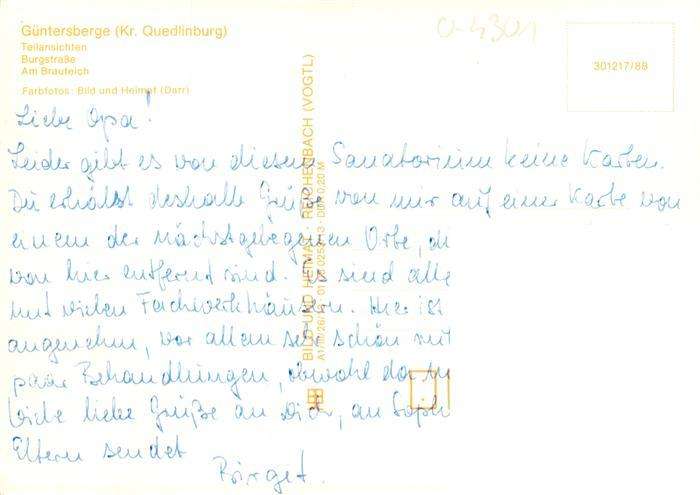 Güntersberge (Kr. Quedlinburg)
Teilansichten
Burgstraße
Am Brauteich
Farbfotos: Bild und Heimat (Darr)
0-4301
301217/88
BILD UND HEIMAT · REICHENBACH (VOGTL)
A1/III/26/13 01 DDR 0,20 M
Liebe Opa!
Leider gibt es von diesem Sanatorium keine Karten.
Du erhälst deshalb Grüße von mir auf einer Karte von
einem der nächstgelegenen Orte, di
von hier entfernt sind. Es sind alle
mit vielen Fachwerkhäusern. Hier ist
angenehm, vor allem sehr schön mit
paar Behandlungen, obwohl
Viele liebe Grüße an Dich, an
Eltern sendet
Birget.